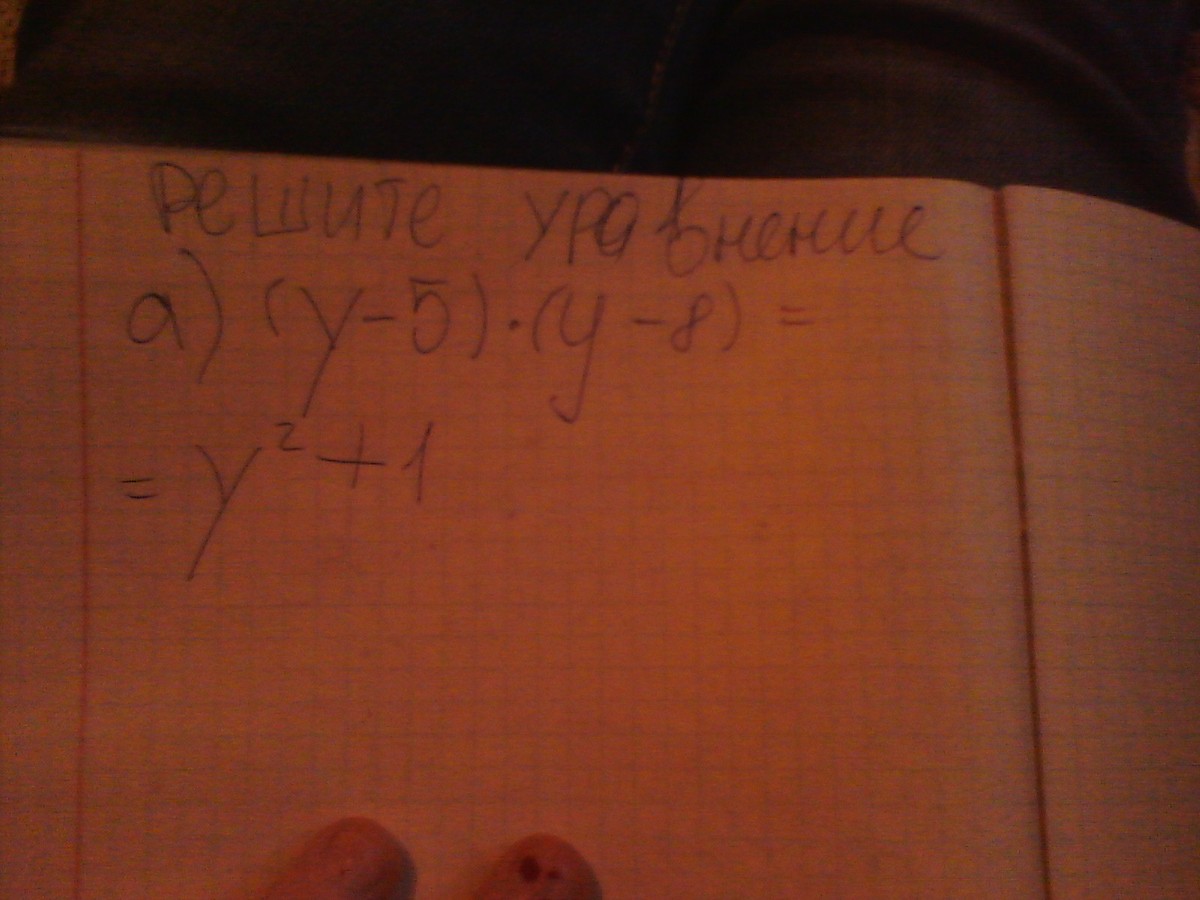 Решите уравнение
а) (y-5)·(y-8)=
= y²+1